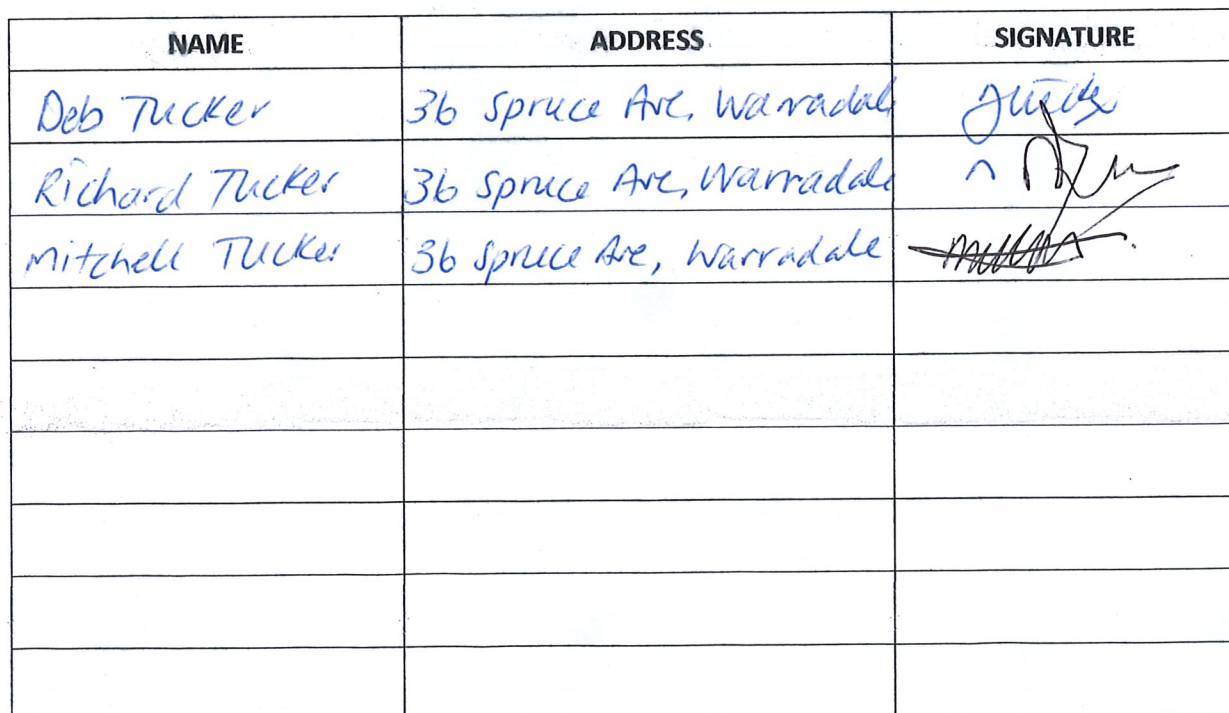 NAME ADDRESS SIGNATURE
Deb Tucker 3b Spruce Ave, Warradale
Richard Tucker 3b Spruce Ave, Warradale
Mitchell Tucker 3b Spruce Ave, Warradale